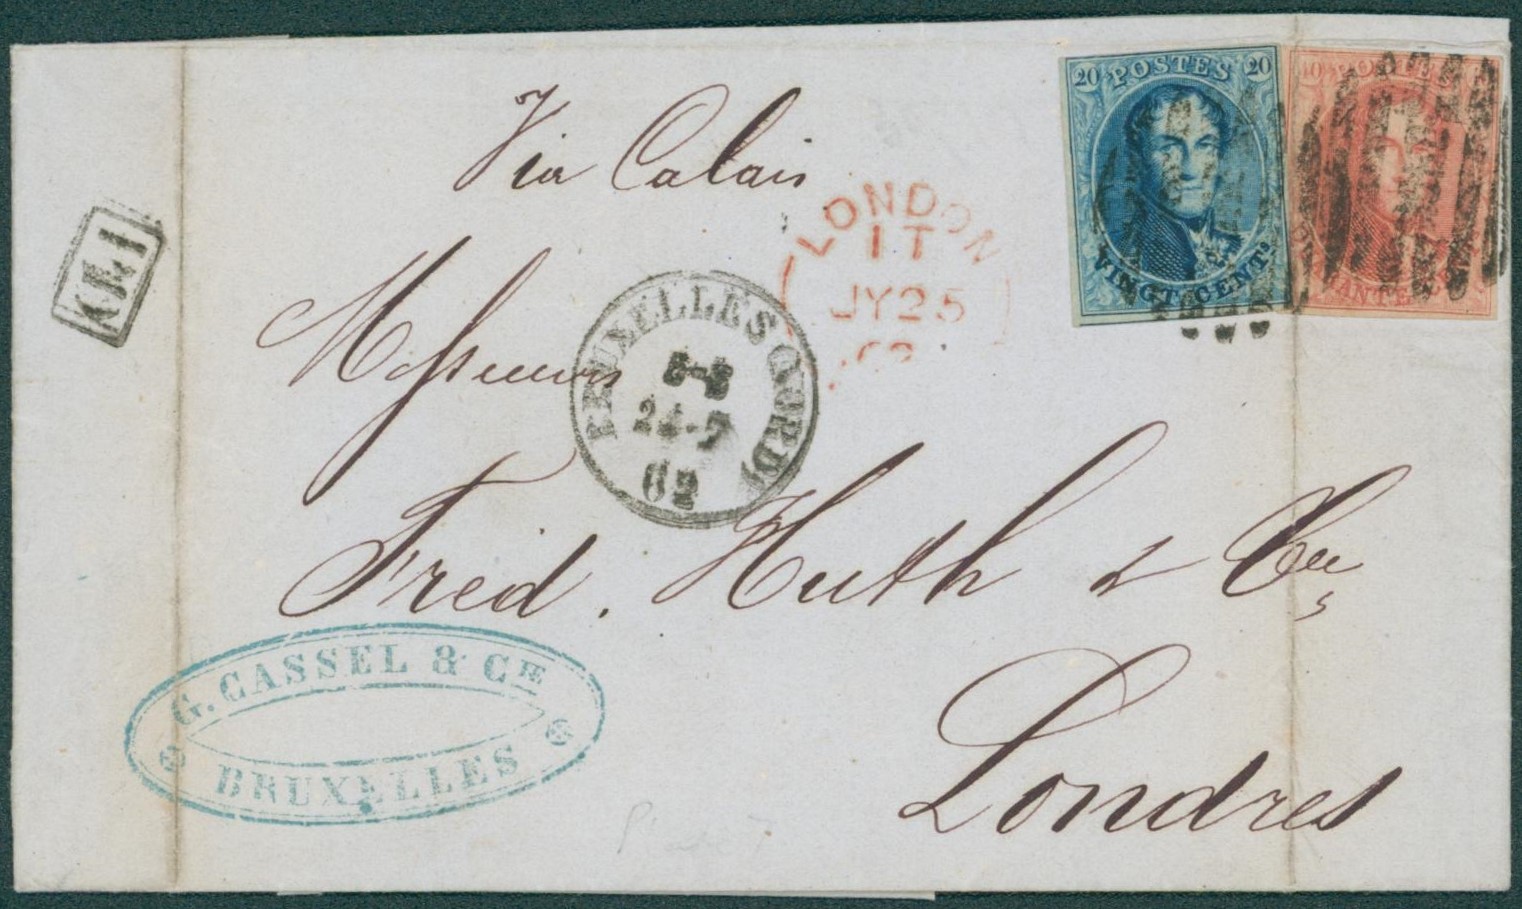 Via Calais
20 POSTES 20
VINGT CENTS
40 POSTES
LONDON
1T
JY25
62
AE1
BRUXELLES (NORD)
24-7
62
Messieurs
Fred. Huth & Cie
Londres
G. CASSEL & CIE
BRUXELLES